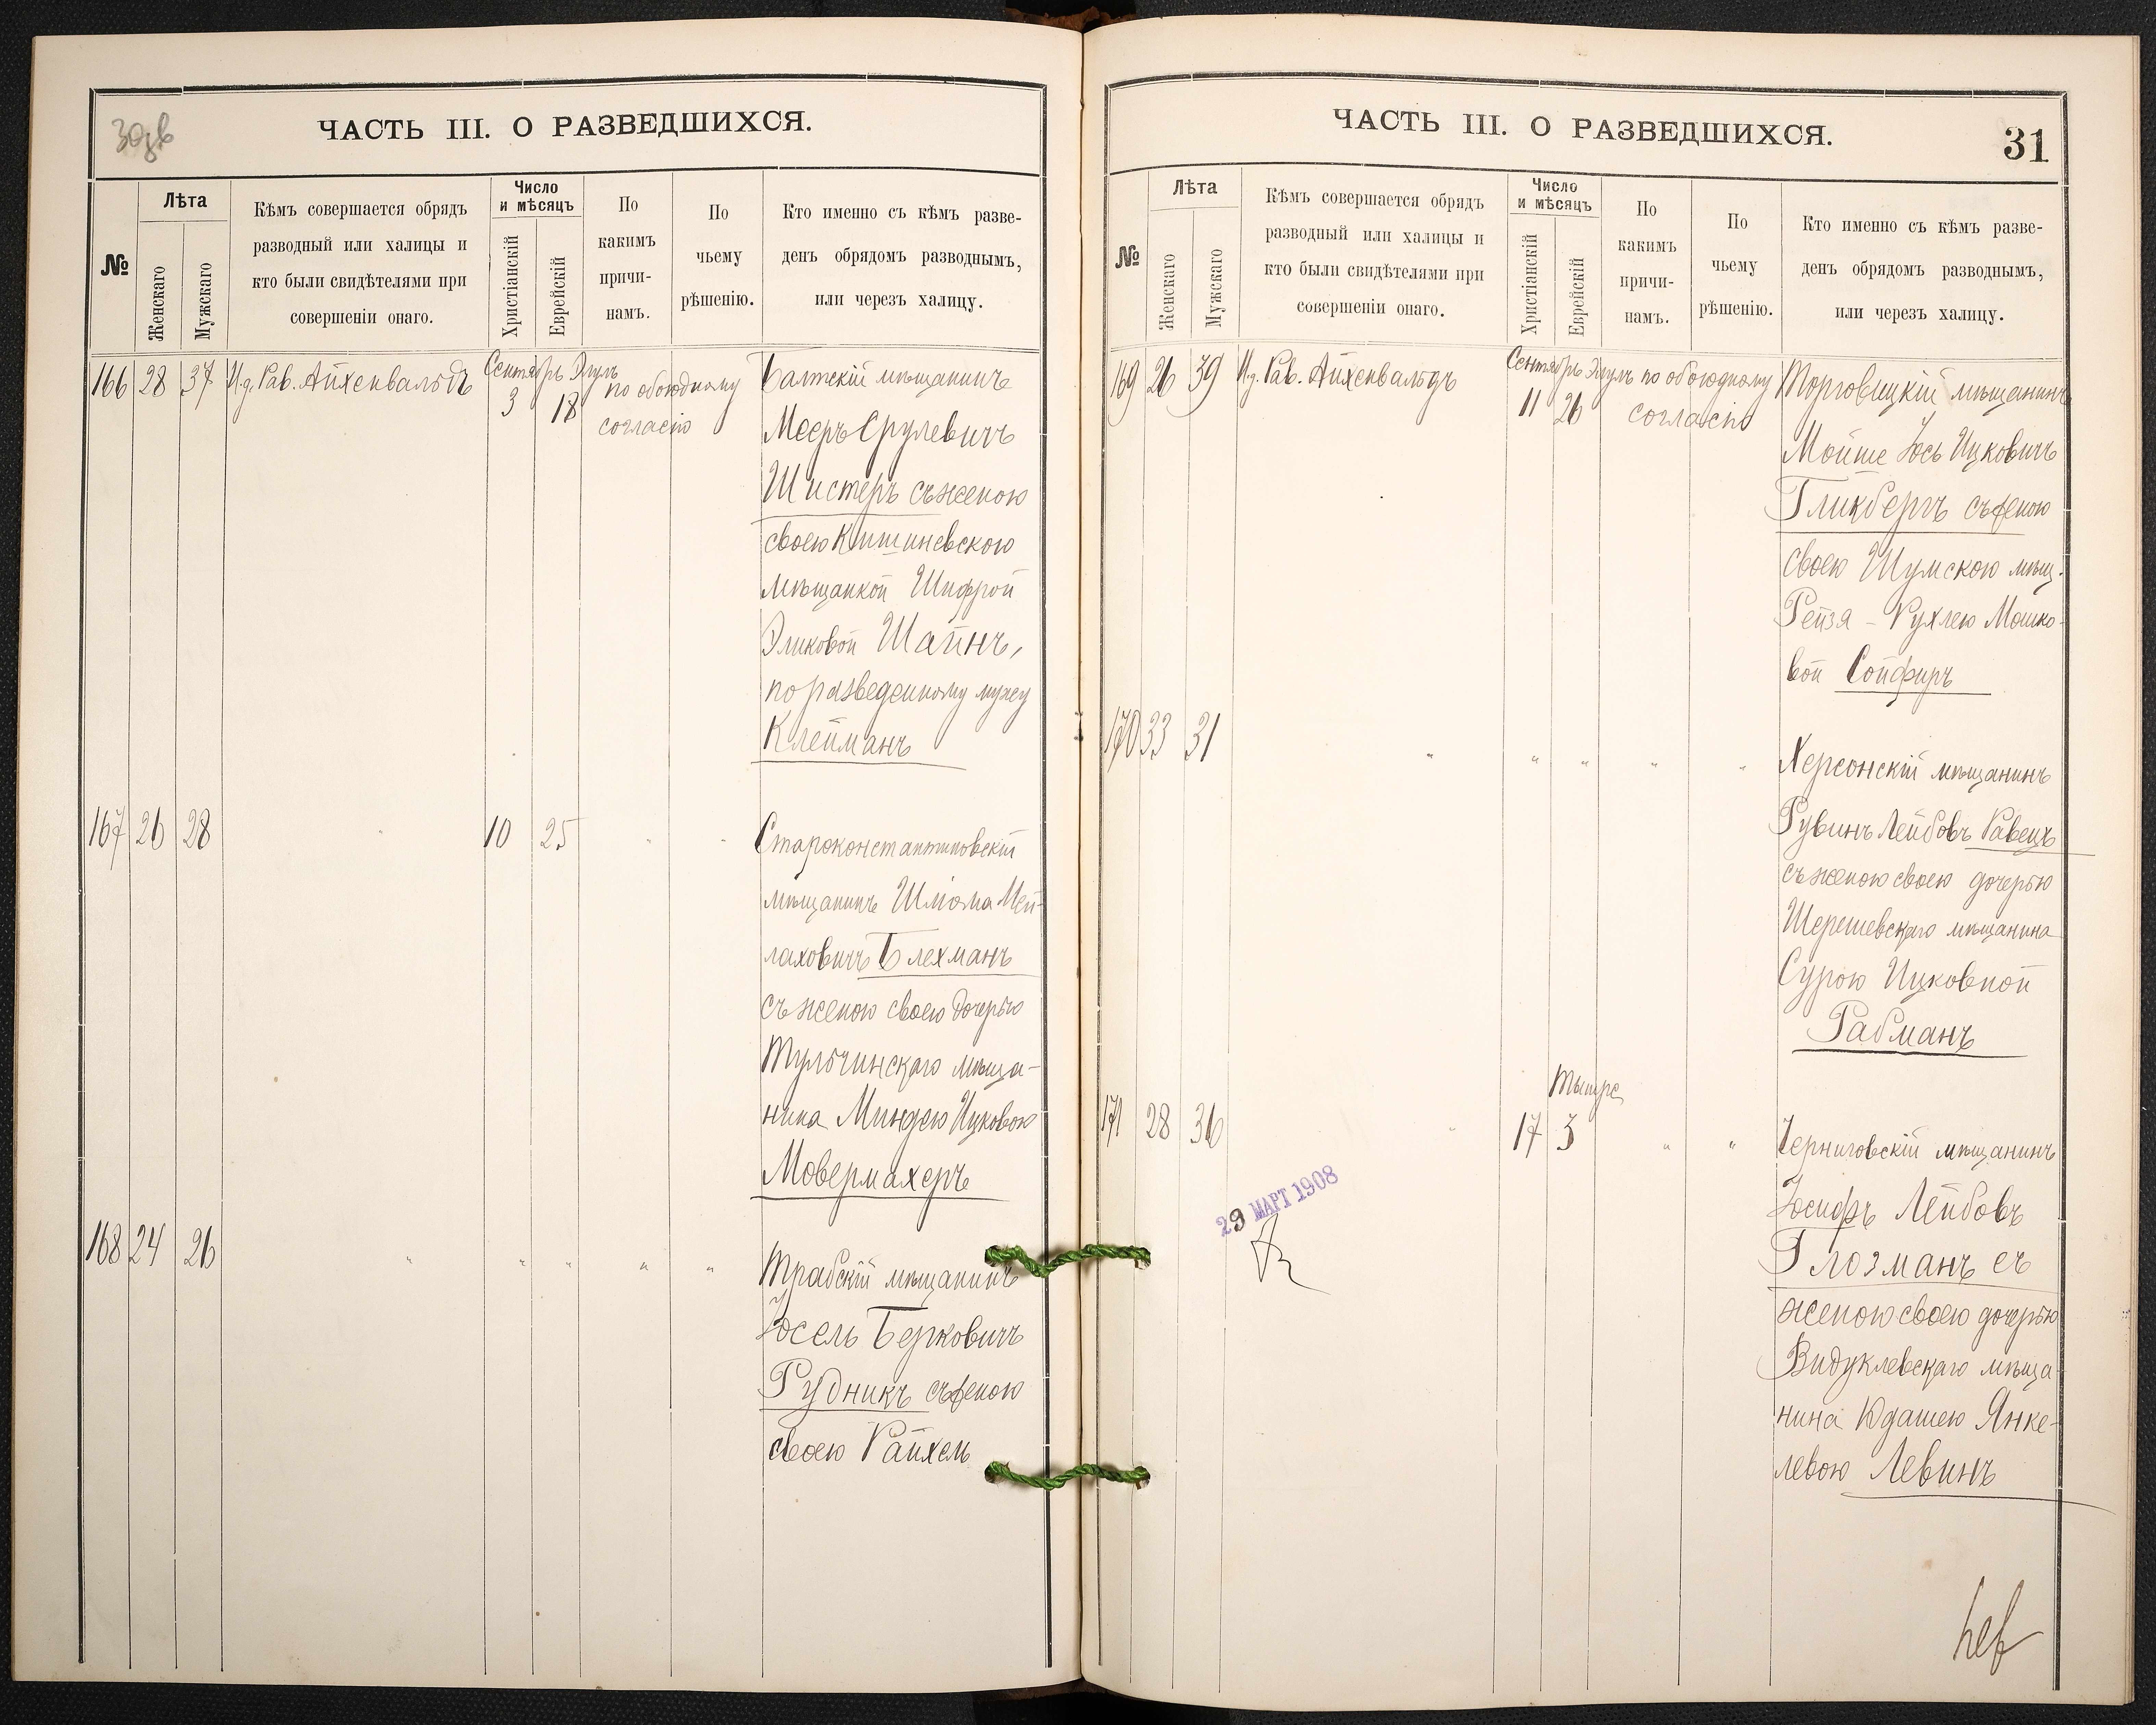 30об
ЧАСТЬ III. О РАЗВЕДШИХСЯ.
№
Лѣта
Женскаго
Мужскаго
Кѣмъ совершается обрядъ
разводный или халицы и
кто были свидѣтелями при
совершеніи онаго.
Число
и мѣсяцъ
Христіанскій
Еврейскій
По
какимъ
причи-
намъ.
По
чьему
рѣшенію.
Кто именно съ кѣмъ разве-
денъ обрядомъ разводнымъ,
или черезъ халицу.
166 28 37 И.д. Рав. Айхенвальдъ Сентябрь 3 Элулъ 18 по обоюдному
согласію
Балтскій мѣщанинъ
Мееръ Срулевичъ
Шистеръ съ женою
своею Кишиневскою
мѣщанкой Шифрой
Эликовой Шайнъ,
по разведенному мужу
Клейманъ
167 26 28 " 10 25 " "
Староконстантиновскій
мѣщанинъ Шліома Мей-
лаховичъ Блехманъ
съ женою своею дочерью
Тульчинскаго мѣща-
нина Миндею Ицковою
Мовермахеръ
168 24 26 " " " " "
Трабскій мѣщанинъ
Іосель Берковичъ
Рудникъ съ женою
своею Райхель
ЧАСТЬ III. О РАЗВЕДШИХСЯ.
31
№
Лѣта
Женскаго
Мужскаго
Кѣмъ совершается обрядъ
разводный или халицы и
кто были свидѣтелями при
совершеніи онаго.
Число
и мѣсяцъ
Христіанскій
Еврейскій
По
какимъ
причи-
намъ.
По
чьему
рѣшенію.
Кто именно съ кѣмъ разве-
денъ обрядомъ разводнымъ,
или черезъ халицу.
169 26 39 И.д. Рав. Айхенвальдъ Сентябрь 11 Элулъ 26 по обоюдному
согласію
Торговицкій мѣщанинъ
Мойше Іось Ицковичъ
Гликбергъ съ женою
своею Шумскою мѣщ.
Рейзя-Рухлею Мошко-
вой Сойфиръ
170 33 31 " " " " "
Херсонскій мѣщанинъ
Рувинъ Лейбовъ Равецъ
съ женою своею дочерью
Шерешевскаго мѣщанина
Сурою Ицковной
Рабманъ
Тышре
171 28 36 " 17 3 " "
Черниговскій мѣщанинъ
Іосифъ Лейбовъ
Глозманъ съ
женою своею дочерью
Видуклевскаго мѣща-
нина Юдашею Янке-
левою Левинъ
29 МАРТ 1908